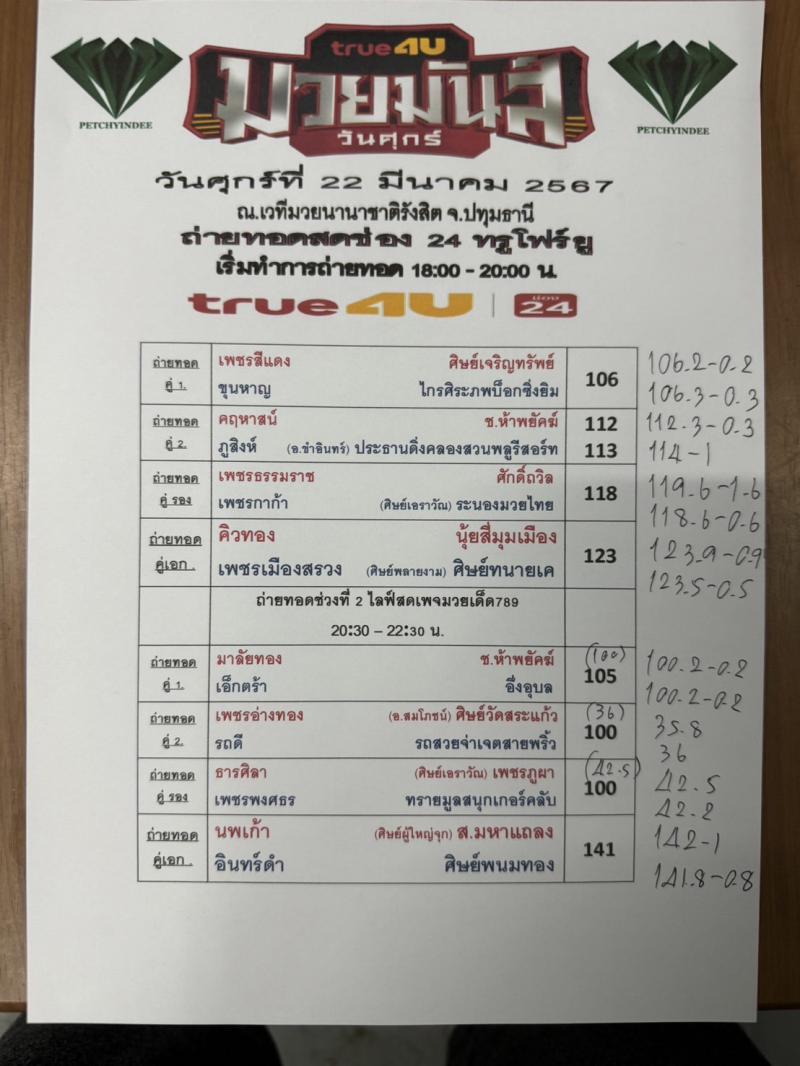 true4U
มวยมันส์
วันศุกร์
PETCHYINDEE
PETCHYINDEE
วันศุกร์ที่ 22 มีนาคม 2567
ณ.เวทีมวยนานาชาติรังสิต จ.ปทุมธานี
ถ่ายทอดสดช่อง 24 ทรูโฟร์ยู
เริ่มทำการถ่ายทอด 18:00 - 20:00 น.
true4U | ช่อง 24
ถ่ายทอด เพชรสีแดง ศิษย์เจริญทรัพย์ 106 106.2-0.2
คู่ 1. ขุนหาญ ไกรศิระภพบ็อกซิ่งยิม 106.3-0.3
ถ่ายทอด คฤหาสน์ ช.ห้าพยัคฆ์ 112 112.3-0.3
คู่ 2. ภูสิงห์ (อ.ขำอินทร์) ประธานดิ่งคลองสวนพลูรีสอร์ท 113 114-1
ถ่ายทอด เพชรธรรมราช ศักดิ์ถวิล 118 119.6-1.6
คู่ รอง เพชรกาก้า (ศิษย์เอราวัณ) ระนองมวยไทย 118.6-0.6
ถ่ายทอด คิวทอง นุ้ยสี่มุมเมือง 123 123.9-0.9
คู่เอก . เพชรเมืองสรวง (ศิษย์พลายงาม) ศิษย์ทนายเค 123.5-0.5
ถ่ายทอดช่วงที่ 2 ไลฟ์สดเพจมวยเด็ด789
20:30 – 22:30 น.
ถ่ายทอด มาลัยทอง ช.ห้าพยัคฆ์ (100) 105 100.2-0.2
คู่ 1. เอ็กตร้า อึ่งอุบล 100.2-0.2
ถ่ายทอด เพชรอ่างทอง (อ.สมโภชน์) ศิษย์วัดสระแก้ว (36) 100 35.8
คู่ 2. รถดี รถสวยจ่าเจตสายพริ้ว 36
ถ่ายทอด ธารศิลา (ศิษย์เอราวัณ) เพชรภูผา (42.5) 100 42.5
คู่ รอง เพชรพงศธร ทรายมูลสนุกเกอร์คลับ 42.2
ถ่ายทอด นพเก้า (ศิษย์ผู้ใหญ่จุก) ส.มหาแถลง 141 142-1
คู่เอก . อินทร์ดำ ศิษย์พนมทอง 141.8-0.8